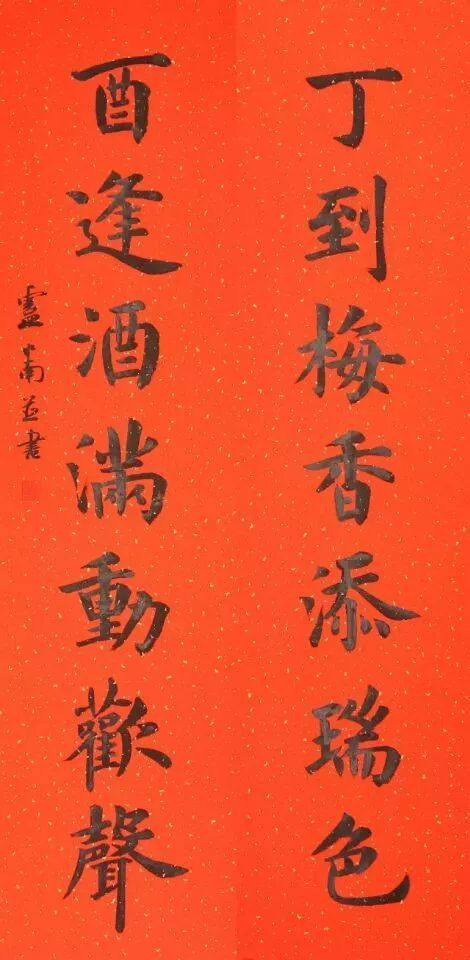 丁到梅香添瑞色
酉逢酒滿動歡聲
盧中南並書